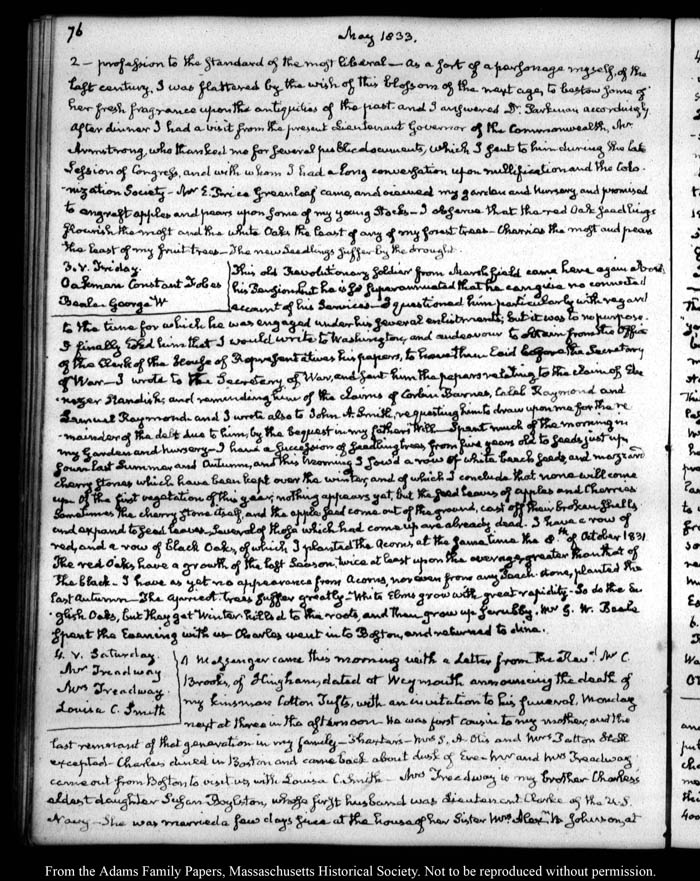 76
May 1833.
2 — profession to the Standard of the most liberal — as a sort of a parsonage myself, of the
last century. I was flattered by the wish of this blossom of the next age, to bestow some of
her fresh fragrance upon the antiquities of the past and I answered Dr. Parkman accordingly
After dinner I had a visit from the present Lieutenant Governor of the Commonwealth, Mr
Armstrong, who thanked me for several public documents, which I sent to him during the late
Session of Congress, and with whom I had a long conversation upon nullification and the Colo-
-nization Society — Mr E. Price Greenleaf came, and viewed my garden and Nursery, and promised
to engraft apples and pears upon some of my young Stocks — I observe that the red Oak seedlings
flourish the most and the white Oaks the least of any of my forest trees — Cherries the most and pears
the least of my fruit trees — The new Seedlings suffer by the drought.
3. V. Friday.
Oakman Constant Fobes
Beale George W
This old Revolutionary Soldier from Marshfield came here again about
his Pension but he is so superannuated that he can give no connected
account of his Services — I questioned him particularly with regard
to the time for which he was engaged under his several enlistments, but it was to no purpose.
I finally told him that I would write to Washington, and endeavour to obtain from the Office
of the Clerk of the House of Representatives his papers, to have them laid before the Secretary
of War — I wrote to the Secretary of War, and sent him the papers relating to the claim of Ebe-
-nezer Standish; and reminding him of the claims of Corbin Barnes, Caleb Raymond and
Samuel Raymond — and I wrote also to John A. Smith, requesting him to draw upon me for the re-
-mainder of the debt due to him, by the bequest in my father's Will — I spent much of the morning in
my Garden and Nursery — I have a succession of seedling trees from five years old to seeds just up
sown last Summer and Autumn, and this morning I sow'd a row of white beech seeds, and mazzard
cherry stones which have been kept over the winter, and of which I conclude that none will come
up. Of the first vegetation of this year, nothing appears yet, but the seed leaves of apples and Cherries
Sometimes the cherry stone itself, and the apple seed come out of the ground, cast off their broken shells
and expand to seed leaves. Several of those which had come up are already dead. I have a row of
red, and a row of black Oaks, of which I planted the Acorns, at the same time the 8th of October 1831.
The red Oaks have a growth of the last Season, twice at least upon the average greater than that of
the black — I have as yet no appearance from Acorns, nor even from any Peach-stone, planted the
last Autumn — The Apricot trees suffer greatly — White Elms grow with great rapidity — So do the En-
-glish Oaks, but they get Winter killed to the roots, and then grow up scrubby. Mr G. W. Beale
spent the Evening with us — Charles went in to Boston, and returned to dine.
4. V. Saturday.
Mr Treadway
Mrs Treadway
Louisa C. Smith
A Messenger came this morning with a Letter from the Revd. Mr C.
Brooks, of Hingham, dated at Weymouth announcing the death of
my kinsman Cotton Tufts, with an invitation to his funeral, Monday
next at three in the afternoon — He was first cousin to my mother, and the
last remnant of that generation in my family — Mrs S. A. Otis and Mrs
excepted — Charles dined in Boston and came back about dusk of Eve — Mr and Mrs Treadway
came out from Boston to visit us, with Louisa C. Smith — Mrs Treadway is my brother Charles's
eldest daughter Susan Boylston, whose first husband was Lieutenant Clarke of the U.S.
Navy — She was married a few days since at the house of her Sister Mrs Alexr. Johnson, at
From the Adams Family Papers, Massachusetts Historical Society. Not to be reproduced without permission.